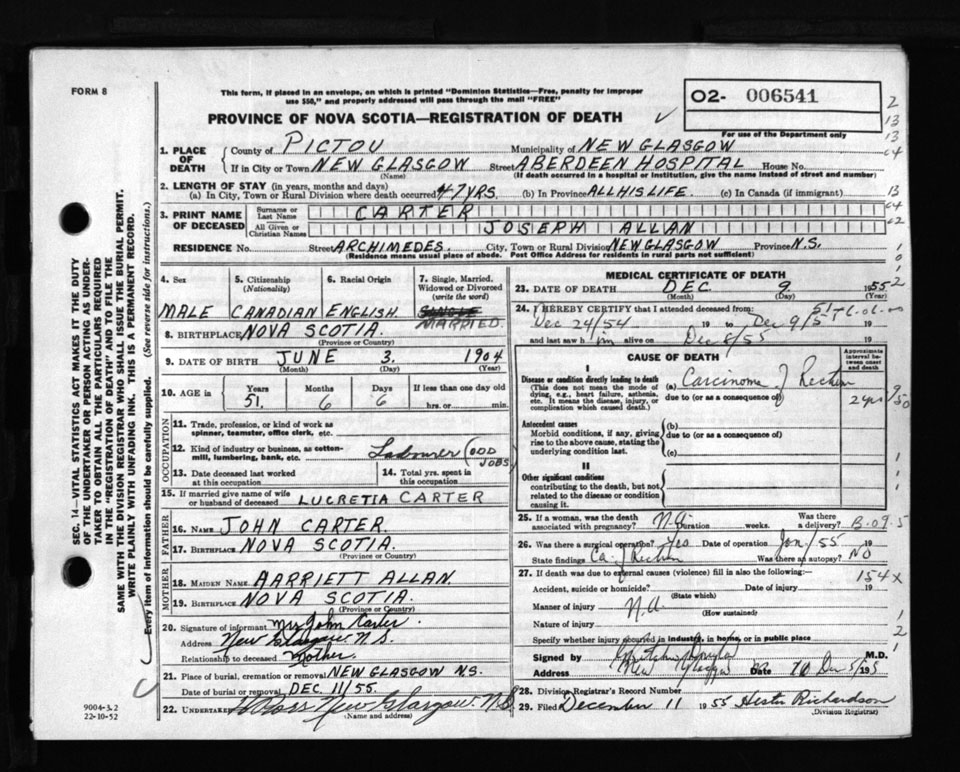 FORM 8
This form, if placed in an envelope, on which is printed "Dominion Statistics—Free, penalty for improper
use $50," and properly addressed will pass through the mail "FREE"
O2- 006541
For use of the Department only
PROVINCE OF NOVA SCOTIA—REGISTRATION OF DEATH
2
13
13
64
13
64
02
1. PLACE OF DEATH
County of PICTOU Municipality of NEW GLASGOW
If in City or Town NEW GLASGOW Street ABERDEEN HOSPITAL House No.
(Name) (If death occurred in a hospital or institution, give the name instead of street and number)
2. LENGTH OF STAY (in years, months and days)
(a) In City, Town or Rural Division where death occurred 47 YRS. (b) In Province ALL HIS LIFE. (c) In Canada (if immigrant)
3. PRINT NAME OF DECEASED
Surname or Last Name CARTER
All Given or Christian Names JOSEPH ALLAN
RESIDENCE No. Street ARCHIMEDES. City, Town or Rural Division NEW GLASGOW Province N.S.
(Residence means usual place of abode. Post Office Address for residents in rural parts not sufficient)
4. Sex
5. Citizenship (Nationality)
6. Racial Origin
7. Single, Married, Widowed or Divorced (write the word)
SINGLE
MALE CANADIAN ENGLISH. MARRIED.
8. BIRTHPLACE NOVA SCOTIA.
(Province or Country)
9. DATE OF BIRTH JUNE 3. 1904
(Month) (Day) (Year)
10. AGE in
Years Months Days If less than one day old
51. 6 6 hrs. or min.
OCCUPATION
11. Trade, profession, or kind of work as
spinner, teamster, office clerk, etc.
12. Kind of industry or business, as cotton-
mill, lumbering, bank, etc. Labourer (ODD JOBS)
13. Date deceased last worked
at this occupation
14. Total yrs. spent in
this occupation
15. If married give name of wife
or husband of deceased LUCRETIA CARTER
FATHER
16. NAME JOHN CARTER.
17. BIRTHPLACE NOVA SCOTIA.
(Province or Country)
MOTHER
18. MAIDEN NAME HARRIETT ALLAN.
19. BIRTHPLACE NOVA SCOTIA.
(Province or Country)
20. Signature of informant Mrs John Carter.
Address New Glasgow N.S.
Relationship to deceased Mother.
21. Place of burial, cremation or removal NEW GLASGOW N.S.
Date of burial or removal DEC. 11/55.
22. UNDERTAKER Ross New Glasgow. N.S.
(Name and address)
MEDICAL CERTIFICATE OF DEATH
23. DATE OF DEATH DEC. 9 1955
(Month) (Day) (Year)
24. I HEREBY CERTIFY that I attended deceased from:
Dec 24/54 19 to Dec 9/5 19
and last saw him alive on Dec 8/55 19
CAUSE OF DEATH
Approximate interval between onset and death
I
Disease or condition directly leading to death
(This does not mean the mode of
dying, e.g., heart failure, asthenia,
etc. It means the disease, injury, or
complication which caused death.)
(a) Carcinoma of Rectum
due to (or as a consequence of)
2 yrs
Antecedent causes
Morbid conditions, if any, giving
rise to the above cause, stating the
underlying condition last.
(b)
due to (or as a consequence of)
(c)
II
Other significant conditions
contributing to the death, but not
related to the disease or condition
causing it.
25. If a woman, was the death
associated with pregnancy? N.A. Duration weeks. Was there
a delivery? B-09-5
26. Was there a surgical operation? Yes Date of operation Jan/55 19
State findings Ca. of Rectum Was there an autopsy? No
27. If death was due to external causes (violence) fill in also the following:—
154x
Accident, suicide or homicide? Date of injury 19
(State which)
Manner of injury N.A
(How sustained)
Nature of injury
Specify whether injury occurred in industry, in home, or in public place
Signed by M.D.
Address New Glasgow Date 10 Dec 5/55 19
28. Division Registrar's Record Number
29. Filed December 11 1955 Hester Richardson
(Division Registrar)
SEC. 14—VITAL STATISTICS ACT MAKES IT THE DUTY
OF THE UNDERTAKER OR PERSON ACTING AS UNDER-
TAKER TO OBTAIN ALL THE PARTICULARS REQUIRED
IN THE "REGISTRATION OF DEATH" AND TO FILE THE
SAME WITH THE DIVISION REGISTRAR WHO SHALL ISSUE THE BURIAL PERMIT.
WRITE PLAINLY WITH UNFADING INK. THIS IS A PERMANENT RECORD.
Every item of information should be carefully supplied. (See reverse side for instructions.)
9004-3.2
22-10-52